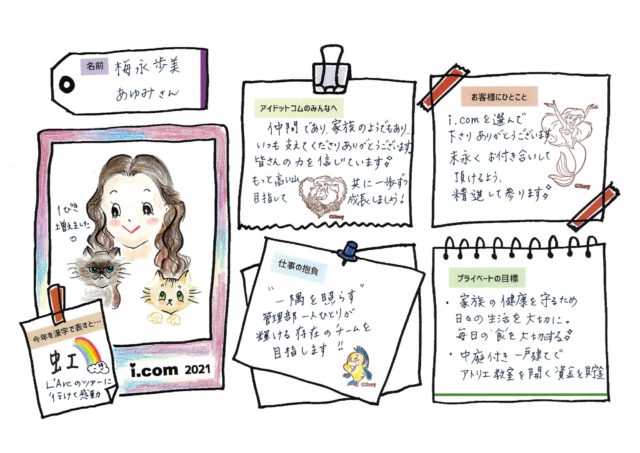 名前
梅永歩美
あゆみさん
1ぴき
増えました♡
今年を漢字で表すと…
虹
L'Arcのツアーに
行けて感動
i.com 2021
アイドットコムのみんなへ
仲間であり、家族のようでもあり
いつも支えてくださりありがとうございます。
皆さんの力を信じています
もっと高い山 共に一歩ずつ
目指して 成長しましょう!
©Disney
お客様にひとこと
i.comを選んで
下さりありがとうございます
末永くお付き合いして
頂けるよう、
精進して参ります
©Disney
仕事の抱負
"一隅を照らす"
管理部一人ひとりが
輝ける存在のチームを
目指します!!
©Disney
プライベートの目標
・家族の健康を守るため
日々の生活を大切に。
毎日の食を大切する
・中庭付き一戸建てで
アトリエ教室を開く資金を貯金